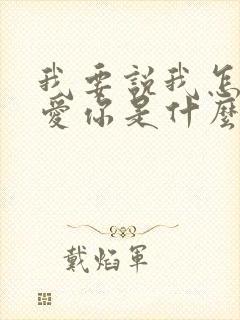 我要說我怎
愛你是什麼
戴焰軍